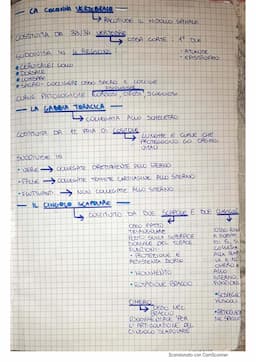 LA COLONNA VERTEBRALE
RACCHIUDE IL MIDOLLO SPINALE
COSTITUITA DA 33/34 VERTEBRE
OSSA CORTE 1° DUE
• ATLANTE
• EPISTROFEO
SUDDIVISA IN 4 REGIONI
• DORSALE
• LOMBARE
• SACRO - COCCIGEA OSSO SACRO E COCCIGE
CURVE PATOLOGICHE SCOLIOSI
LA GABBIA TORACICA
COLLEGATA ALLO SCHELETRO
COSTITUITA DA 12 PAIA DI COSTOLE
LUNGHE E CURVE CHE
PROTEGGONO GLI ORGANI
VITALI
SUDDIVISE IN
• VERE → COLLEGATE DIRETTAMENTE ALLO STERNO
• FALSE → COLLEGATE TRAMITE CARTILAGINE ALLO STERNO
• FLUTTUANTI → NON COLLEGATE ALLO STERNO
IL CINGOLO SCAPOLARE
COSTITUITO DA DUE SCAPOLE E DUE CLAVICOLE
OSSO PIATTO
TRIANGOLARE
POSTO SULLA SUPERFICIE
DORSALE DEL TORACE
FUNZIONI:
• PROTEZIONE E
• MOVIMENTO
OMERO
OSSO DEL
BRACCIO
FONDAMENTALE PER
L'ARTICOLAZIONE DEL
CINGOLO SCAPOLARE
Scansionato con CamScanner